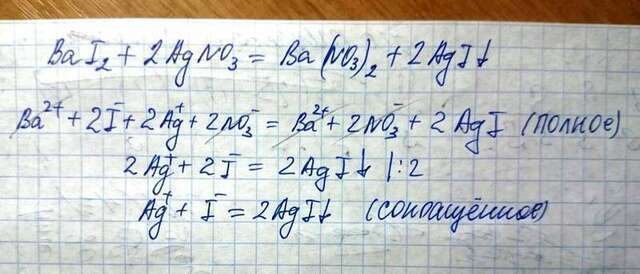 BaI₂ + 2AgNO₃ = Ba(NO₃)₂ + 2AgI↓
Ba²⁺ + 2I⁻ + 2Ag⁺ + 2NO₃⁻ = Ba²⁺ + 2NO₃⁻ + 2AgI (полное)
2Ag⁺ + 2I⁻ = 2AgI↓ |:2
Ag⁺ + I⁻ = 2AgI↓ (сокращённое)